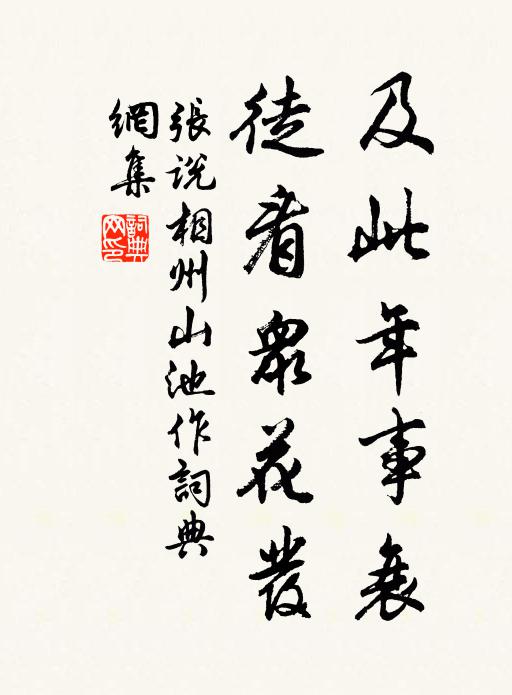 及此年事衰
徒看眾花發
張說相州山池作詞典
網集
詞典網印